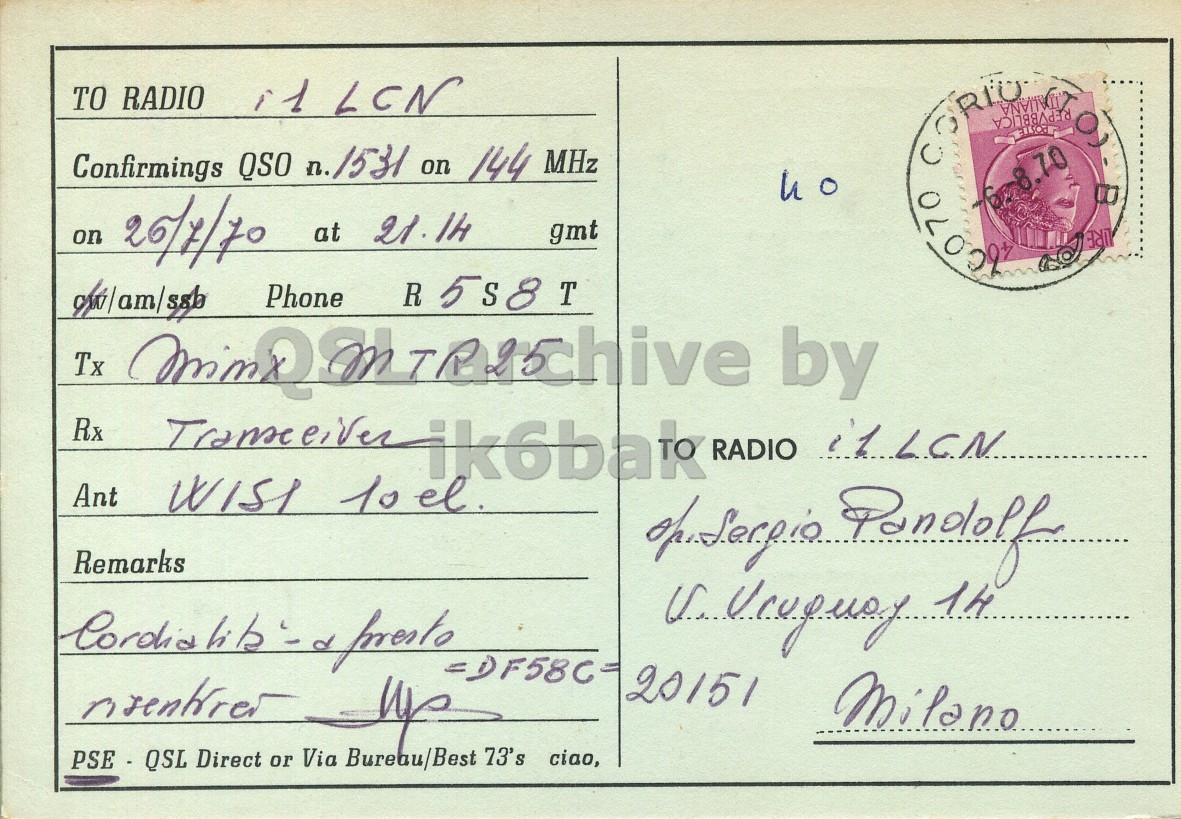 TO RADIO i1 LCN
Confirmings QSO n. 1531 on 144 MHz
on 26/7/70 at 21.14 gmt
cw/am/ssb Phone R 5 S 8 T
Tx Mimx MTR25
Rx Transceiver
Ant WISI 10 el.
Remarks
Cordialità - a presto
=DF58C=
risentirci
PSE - QSL Direct or Via Bureau/Best 73's ciao,
10070 CORIO (TO) - B
-6.-8.70
POSTE
REPVBBLICA
ITALIANA
LIRE 40
40
TO RADIO i1 LCN
op. Sergio Pandolf
V. Uruguay 14
20151 Milano
QSL archive by
ik6bak